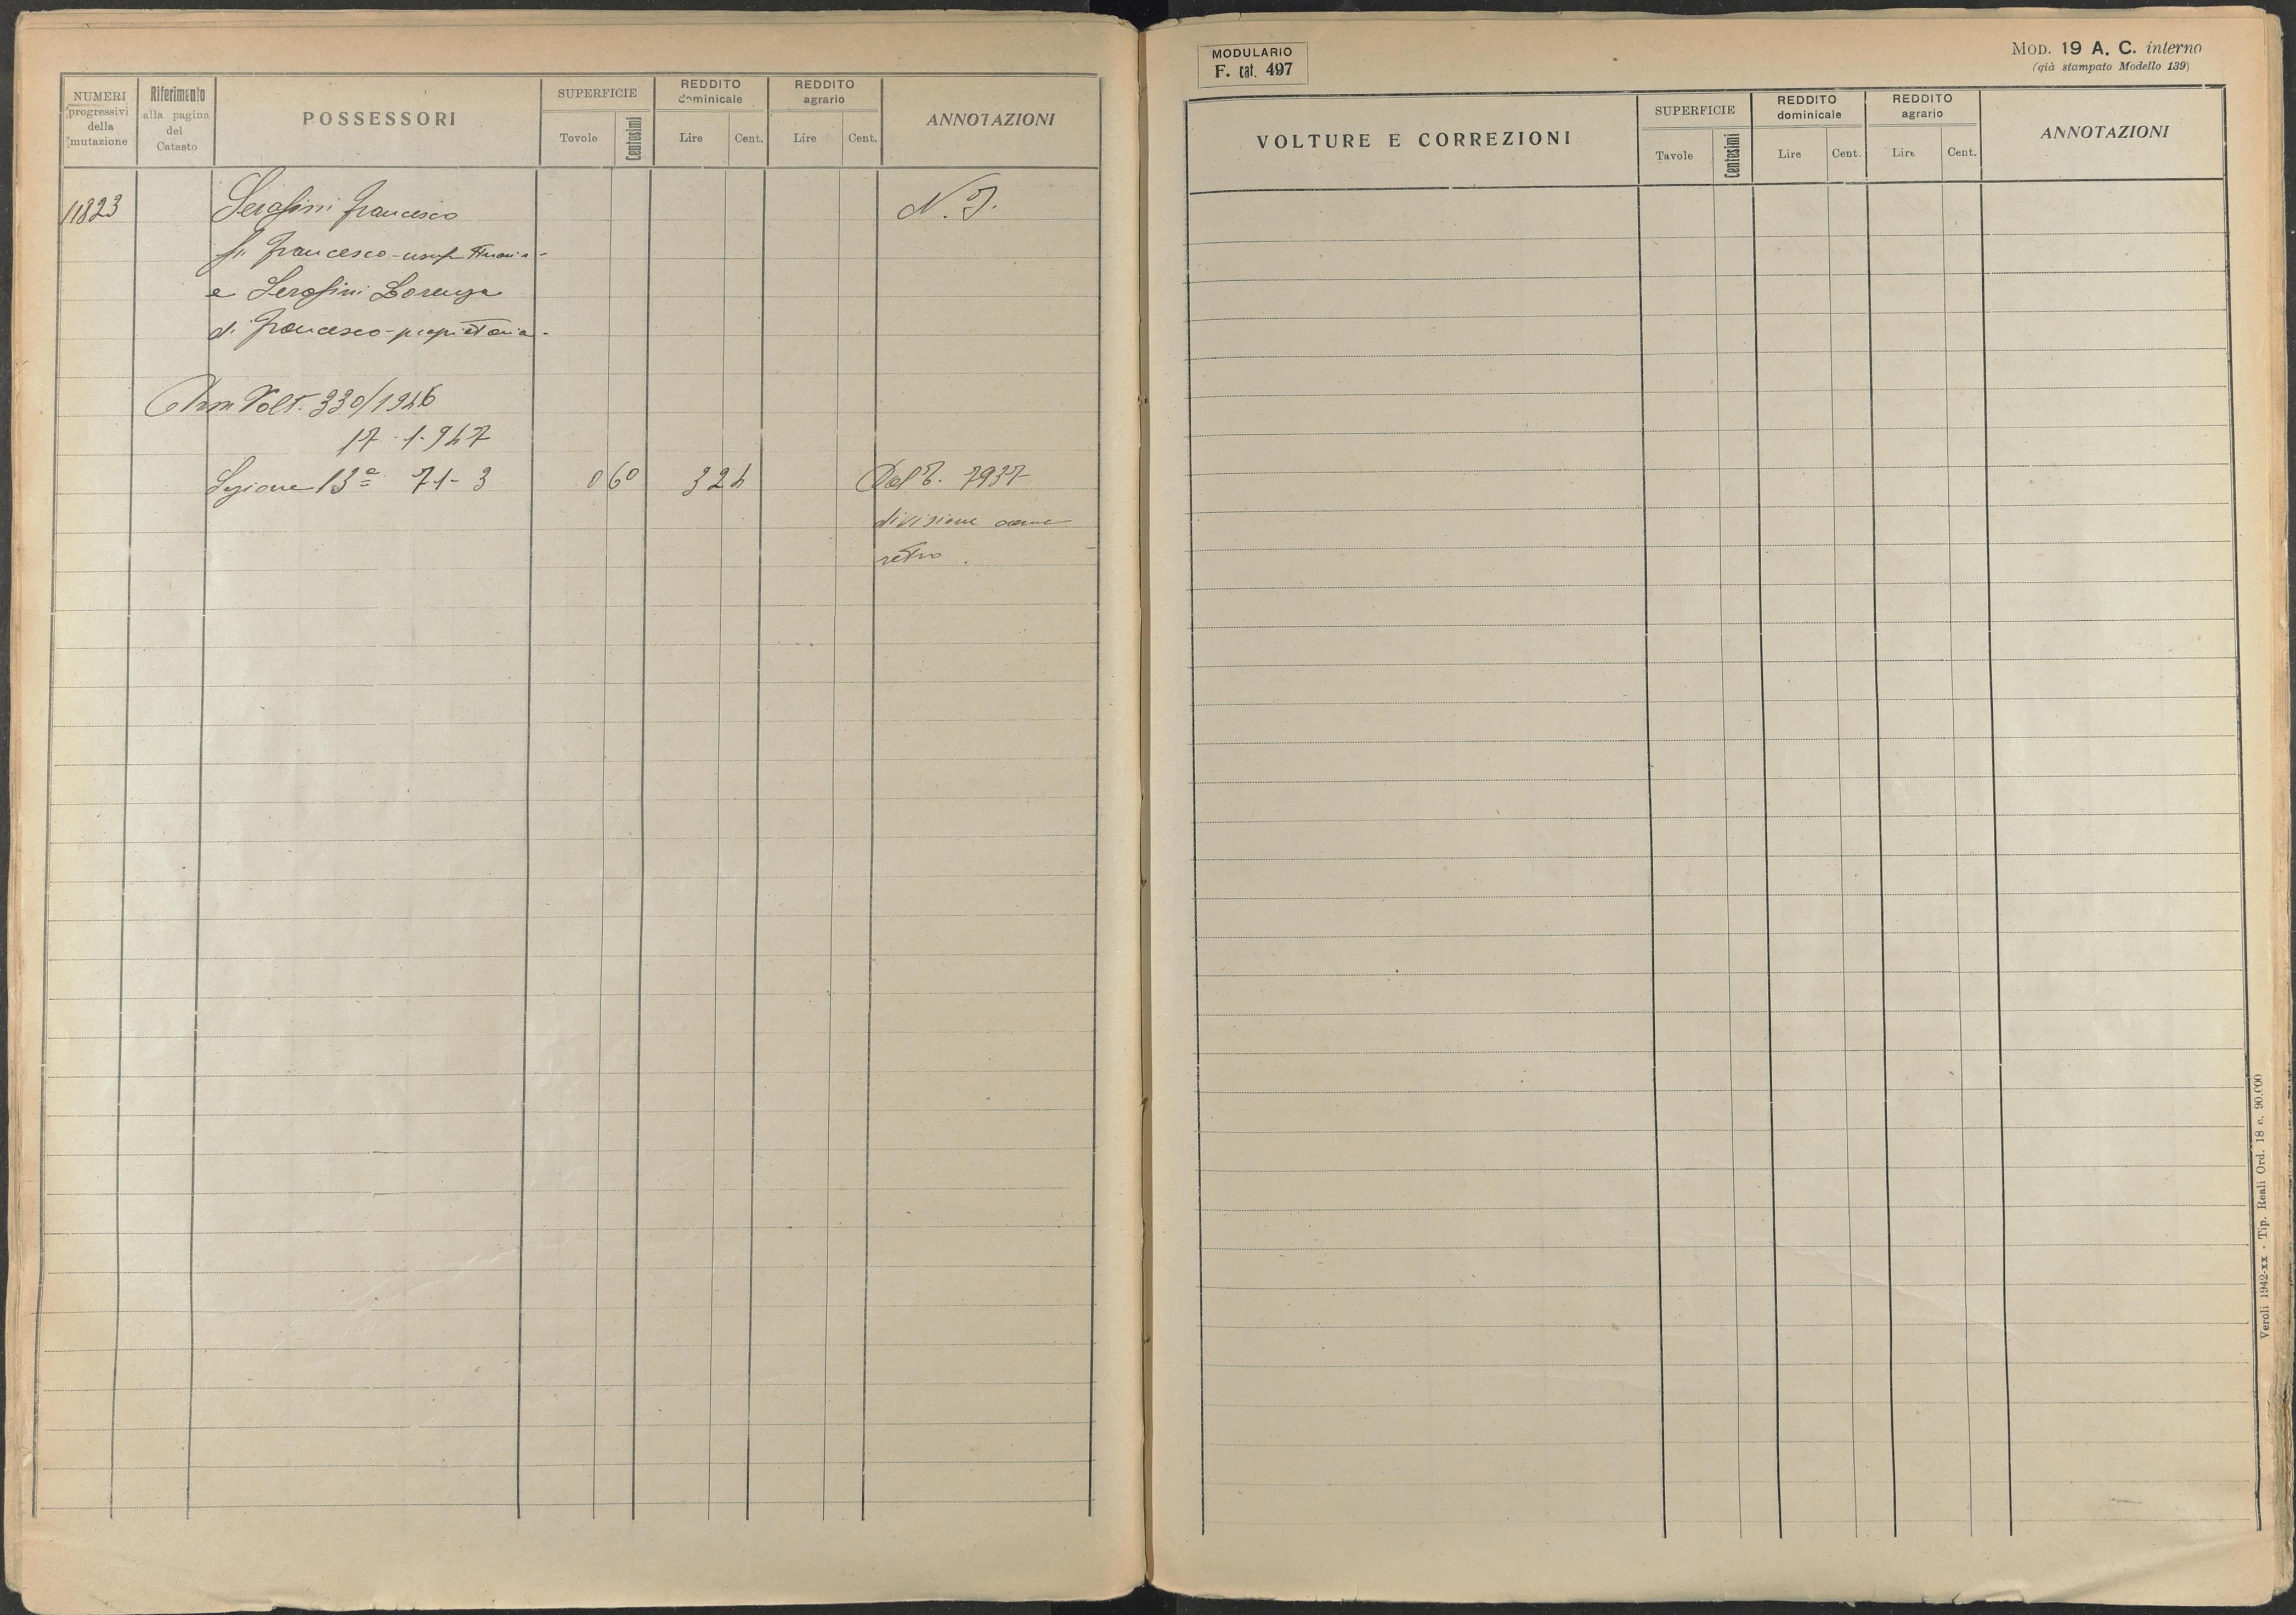 NUMERI
progressivi
della
mutazione
Riferimento
alla pagina
del
Catasto
POSSESSORI
SUPERFICIE
Tavole
Centesimi
REDDITO
dominicale
Lire
Cent.
REDDITO
agrario
Lire
Cent.
ANNOTAZIONI
11823
Serafini Francesco
N. I.
fu Francesco - usufruttuaria -
e Serafini Lorenza
di Francesco - proprietaria -
Volt. 330/1946
17 - 1 - 947
Sezione 13ª 71 - 3
0 60
3 24
Dal P. 7937
divisione come
retro.
MODULARIO
F. cat. 497
MOD. 19 A. C. interno
(già stampato Modello 139)
VOLTURE E CORREZIONI
SUPERFICIE
Tavole
Centesimi
REDDITO
dominicale
Lire
Cent.
REDDITO
agrario
Lire
Cent.
ANNOTAZIONI
Veroli 1942-XX - Tip. Reali Ord. 18 c. 90.000